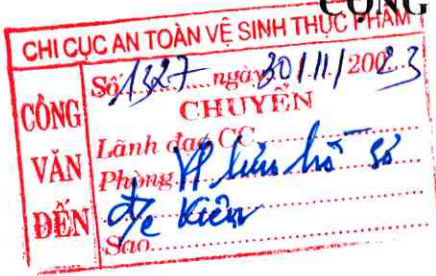 CỘNG
CHI CỤC AN TOÀN VỆ SINH THỰC PHẨM
CÔNG VĂN ĐẾN
Số 1327 ngày 30/11/2023
CHUYỂN
Lãnh đạo CC
Phòng VP lưu hồ sơ
đ/c Kiên
Sao